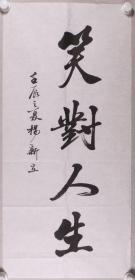 笑對人生
壬辰之夏楊新立